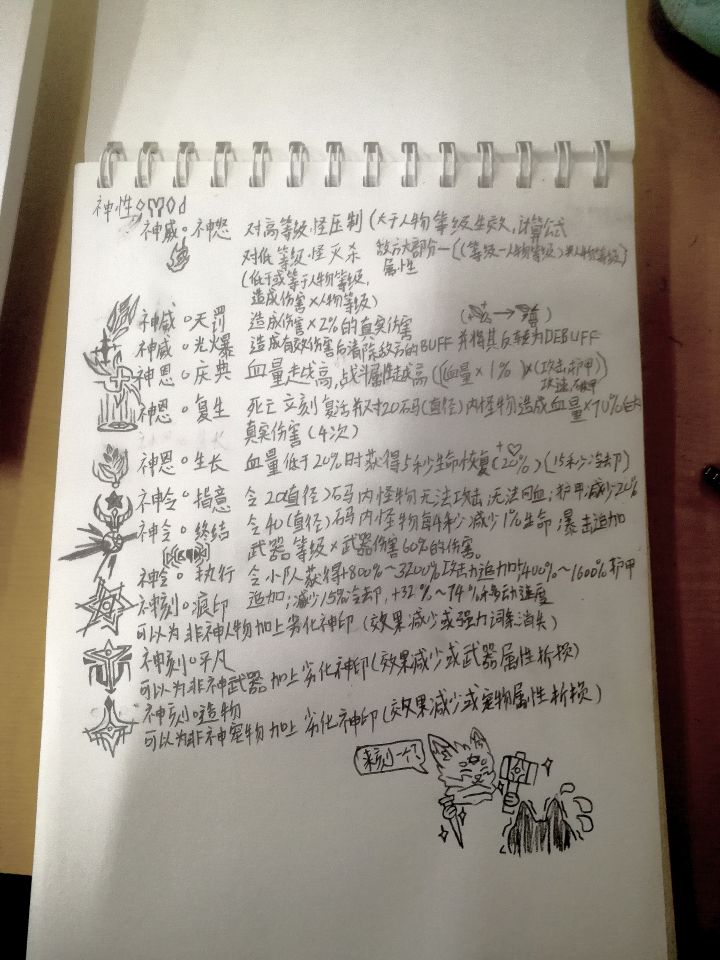 神性
神威。神怒 对高等级怪压制(大于人物等级生效,计算公式
敌方大部分—[(等级-人物等级)×人物等级]
属性
对低等级怪灭杀
(低于或等于人物等级,
造成伤害×人物等级)
神威。天罚 造成伤害×2%的真实伤害
神威。光爆 造成有效伤害后清除敌方的BUFF并将其反转为DEBUFF
神恩。庆典 血量越高,战斗属性越高((血量×1%)×(攻击护甲)
攻速
神恩。复生 死亡立刻复活并对20石码(直径)内怪物造成血量×70%
真实伤害(4次)
神恩。生长 血量低于20%时获得5秒生命恢复(20%)(15秒冷却)
神令。指意 令20(直径)石码内怪物无法攻击;无法回血;护甲减少20%
神令。终结 令40(直径)石码内怪物每4秒减少1%生命,暴击追加
武器等级×武器伤害60%的伤害。
神令。执行 令小队获得+800%~3200%攻击力追加+400%~1600%护甲
追加;减少15%冷却,+32%~74%移动速度
神刻。痕印
可以为非神人物加上劣化神印(效果减少或强力词条消失)
神刻。平凡
可以为非神武器加上劣化神印(效果减少或武器属性折损)
神刻。造物
可以为非神宠物加上劣化神印(效果减少或宠物属性折损)
来刻一个?